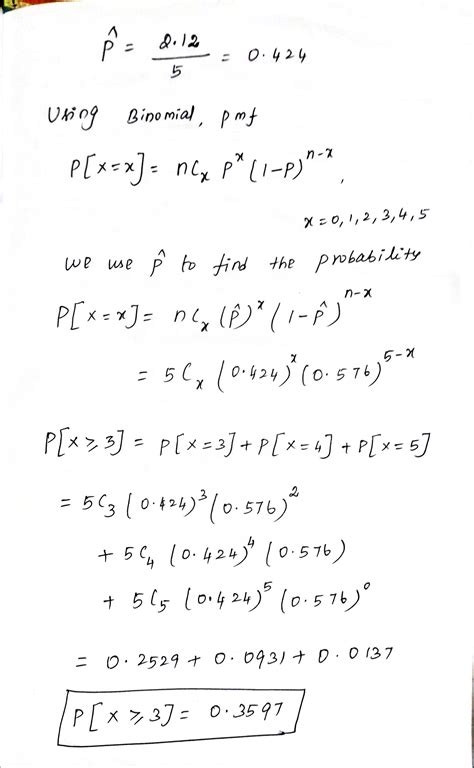 p̂ = 2.12/5 = 0.424
Using Binomial, pmf
P[x=x] = nCₓ pˣ (1-p)ⁿ⁻ˣ,
x = 0, 1, 2, 3, 4, 5
we use p̂ to find the probability
P[x=x] = nCₓ (p̂)ˣ (1-p̂)ⁿ⁻ˣ
= 5Cₓ (0.424)ˣ (0.576)⁵⁻ˣ
P[x ≥ 3] = P[x=3] + P[x=4] + P[x=5]
= 5C₃ (0.424)³ (0.576)²
+ 5C₄ (0.424)⁴ (0.576)
+ 5C₅ (0.424)⁵ (0.576)⁰
= 0.2529 + 0.0931 + 0.0137
P[x ≥ 3] = 0.3597